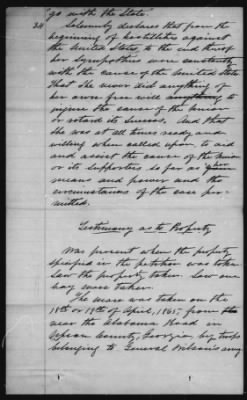 "go with the State."
34 Solemnly declares that from the
beginning of hostilities against
the United States, to the end thereof
her Sympathies were constantly
with the cause of the United States
That she never did anything of
her own free will
injure the cause of the Union
or retard its success. And that
she was at all times ready and
willing when called upon to aid
and assist the cause of the Union
or its supporters so far as her
means and power and the
circumstances of the case per-
mitted.
Testimony as to Property
Was present when the property
specified in the petition was taken
Saw the property taken. Saw one
bay mare taken.
The mare was taken on the
18th or 19th of April, 1865, from
near the Alabama Road in
Upson County, Georgia by troops
belonging to General Wilson's army